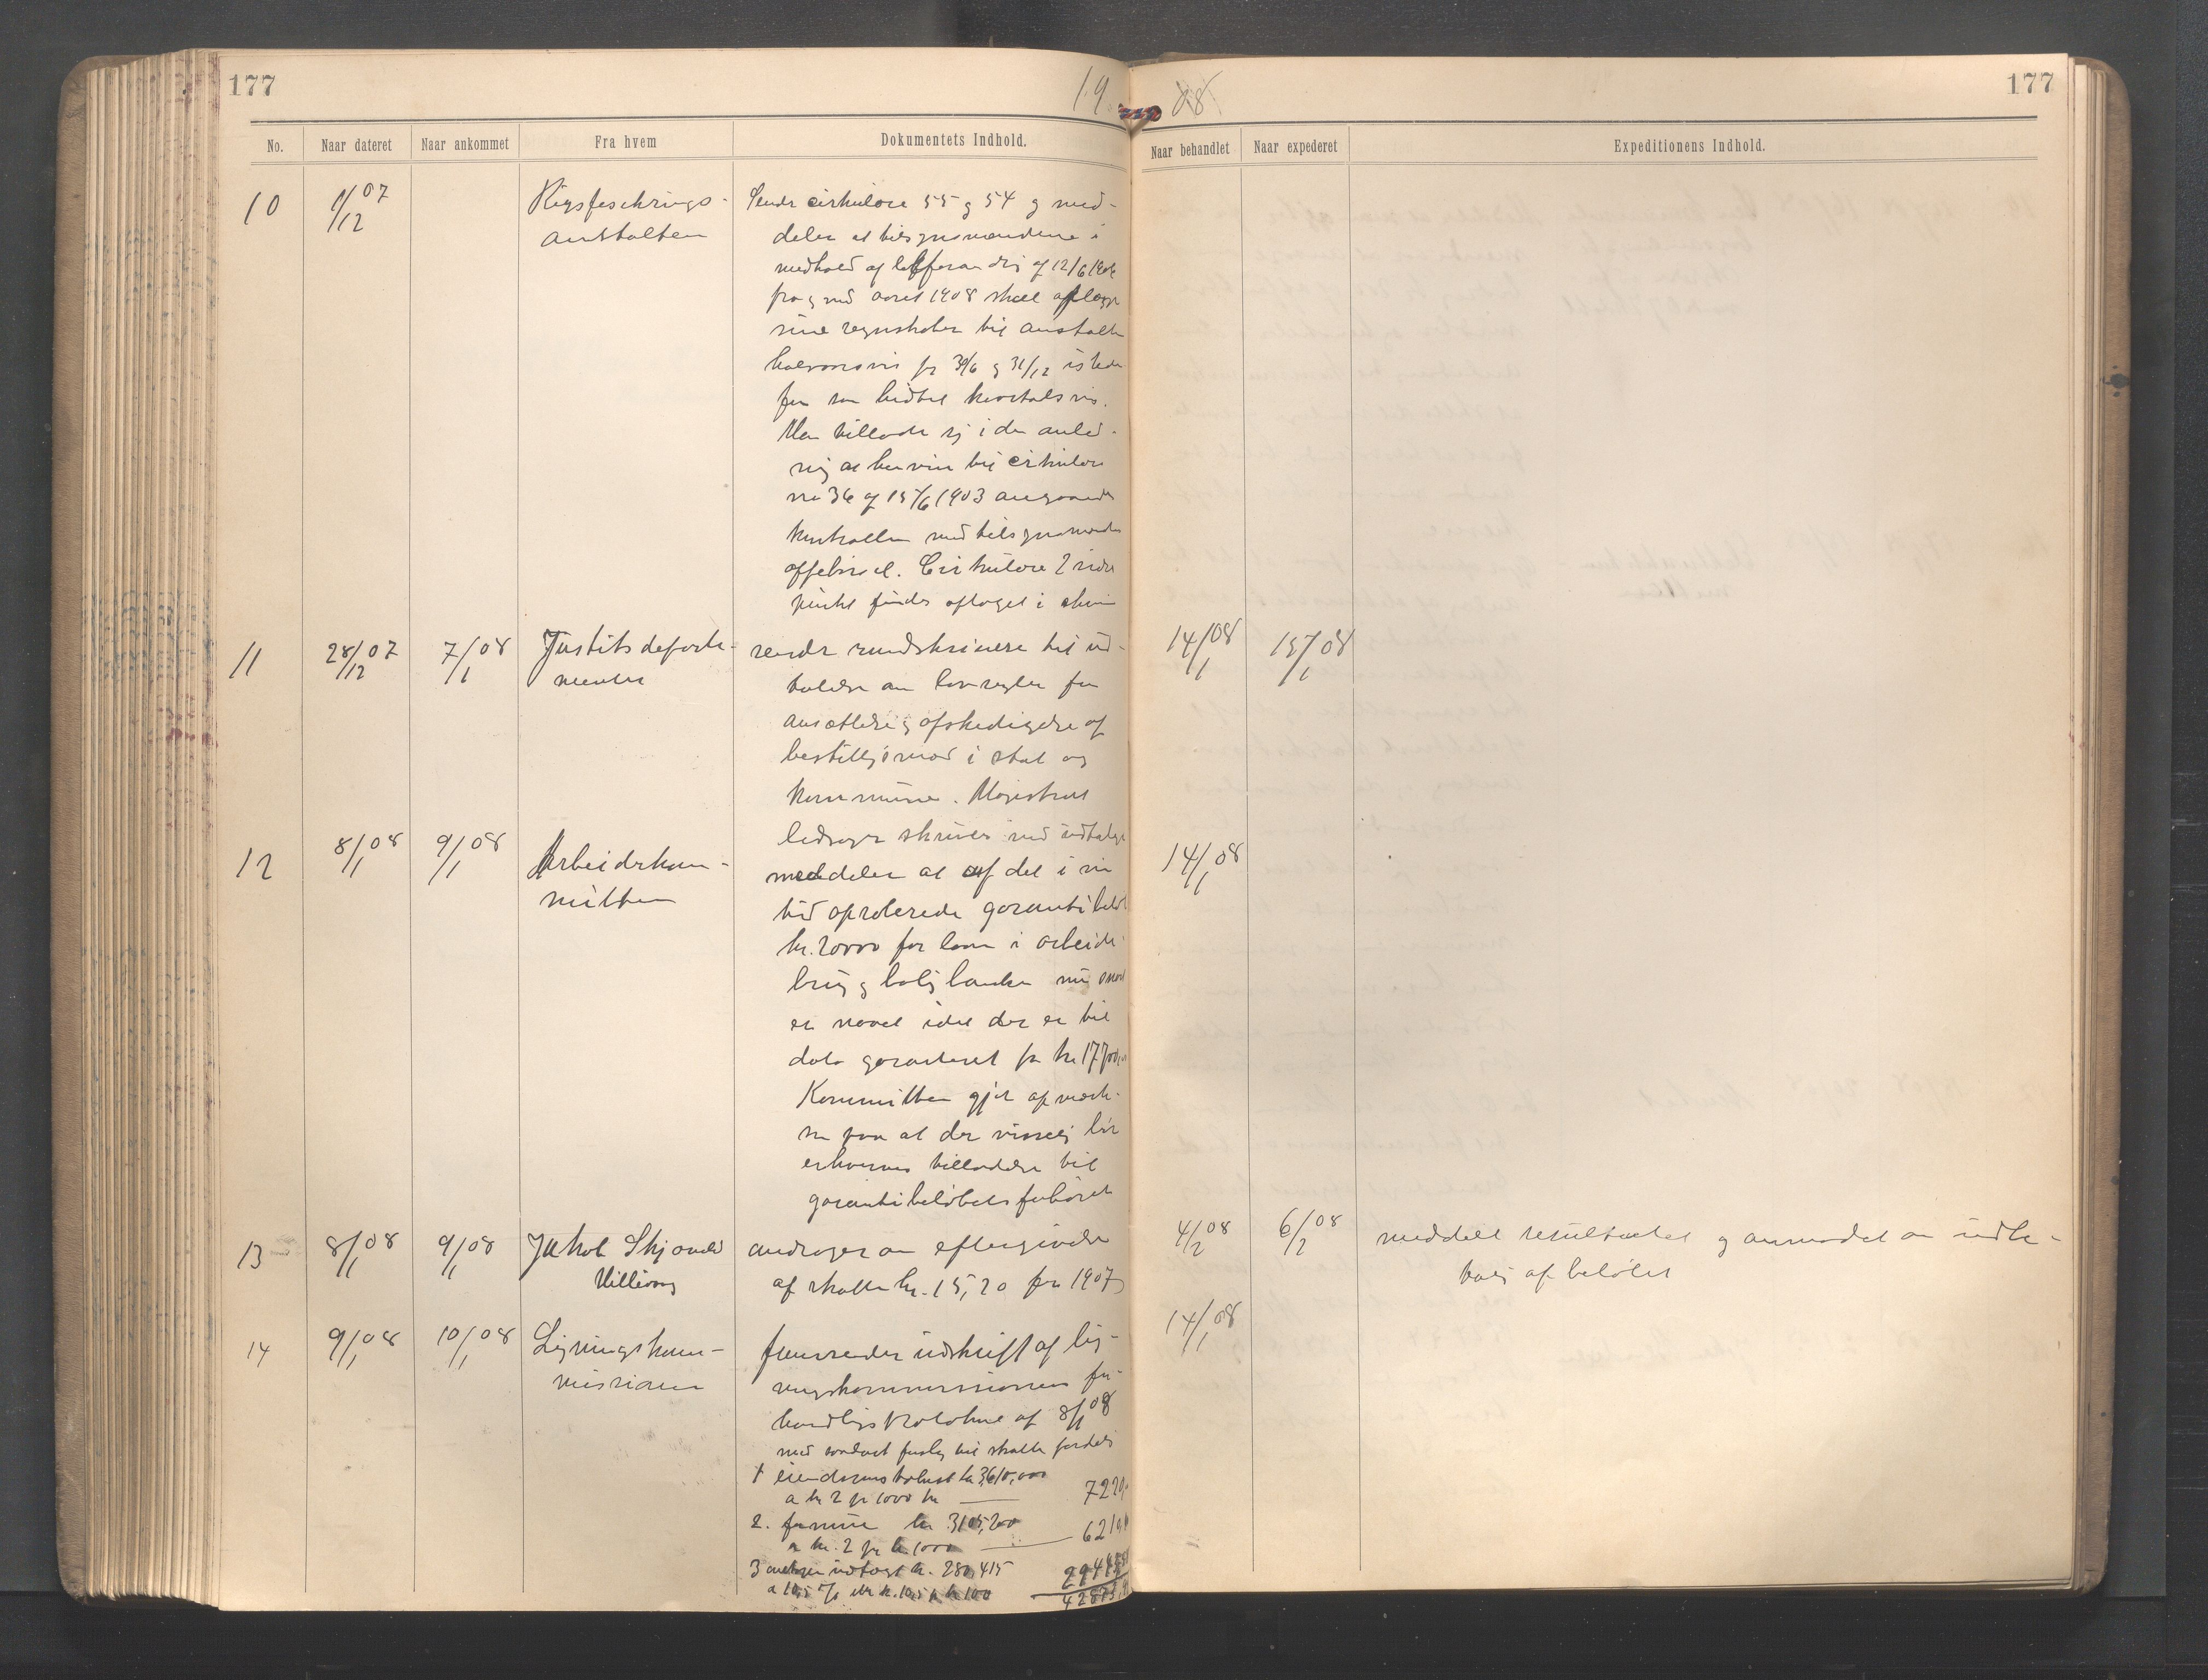 177
19
08
177
No.
Naar dateret
Naar ankommet
Fra hvem
Dokumentets Indhold.
Naar behandlet
Naar expederet
Expeditionens Indhold.
10
1/12 07
Rigsforsikrings-
anstalten
Sender cirkulære 55 g 54 g med-
deler at tilsynsmændene i
medhold af af 12/6 1906
fra g med aaret 1908 skal aflægge
sine regnskaber til anstalten
halvaarsvis pr 30/6 g 31/12 isteden
for som hidtil kvartalsvis.
Man tillader sig i den anled-
ning at henvise til cirkulære
no 36 af 15/6 1903 angaaende
kontrollen med tilsynsmændenes
opførsel. Cirkulære 2 sidste
punkt findes optaget i
11
28/12 07
7/1 08
Justitsdeparte-
mentet
sender rundskrivelse til ud-
talelse om lovregler for
ansættelse g afskedigelse af
bestillingsmænd i stat og
kommune. Magistrat
ledsager skrivelse med udtalelse
14/1 08
15/1 08
12
8/1 08
9/1 08
Arbeiderkom-
mitteen
meddeler at af det i sin
tid garantibeløb
kr. 20000 for laan i arbeider
brug g boligbanken nu snart
er naaet idet der er til
dato garanteret for kr 17700,
Kommitteen gjør opmærk-
som paa at der bør
erhverves tilladelse til
garantibeløbets forhøielse
14/1 08
13
8/1 08
9/1 08
Jakob Skjævelø
Hillevaag
andrager om eftergivelse
af skatten kr. 15,20 for 1907
4/2 08
6/2 08
meddelt resultatet g anmodet om indbe-
taling af beløbet
14
9/1 08
10/1 08
Ligningskom-
missionen
fremsender udskrift af lig-
ningskommissionens for-
handlingsprotokol af 8/1 08
med saadant forslag til skatte fordeling
1 eiendomstakst kr 3,610,000
a kr 2 pr 1000 kr
7220,
2. formue kr 3,105,200
a kr. 2 pr kr 1000
3 indtægt kr. 280,415
a 10,5 % eller kr. 10,5 pr kr 100
14/1 08